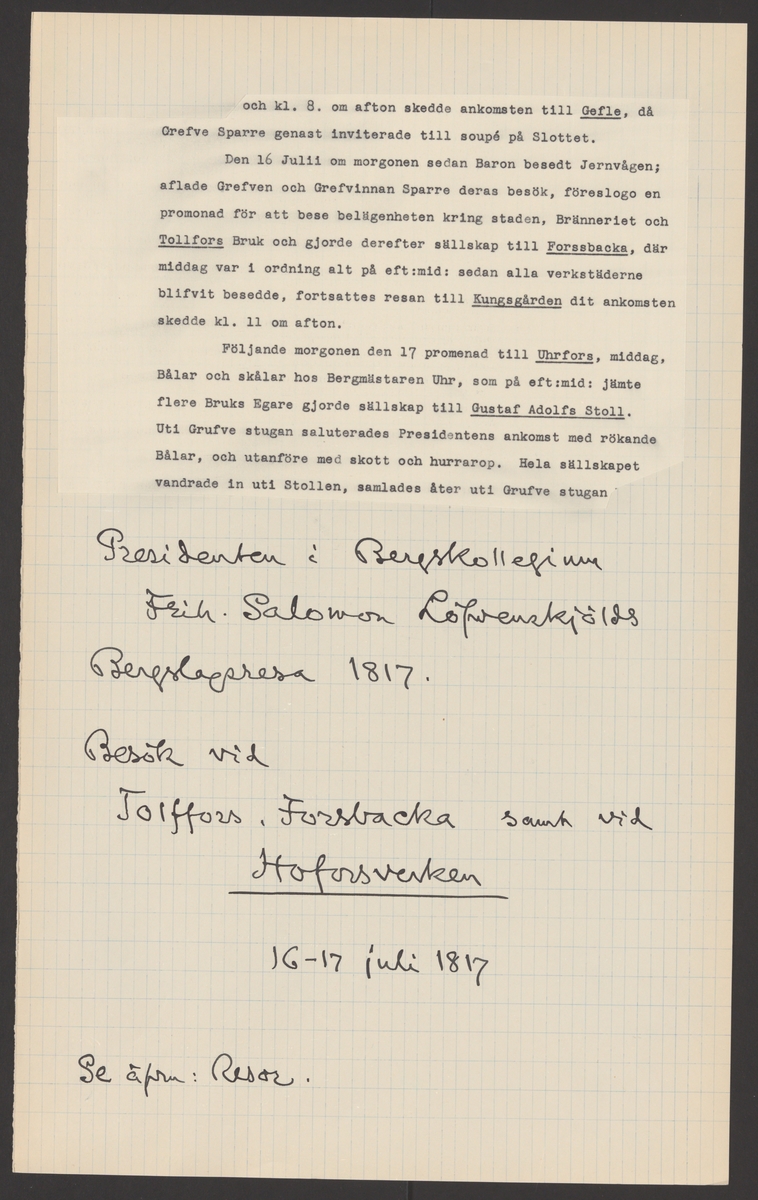 och kl. 8. om afton skedde ankomsten till Gefle, då
Grefve Sparre genast inviterade till soupé på Slottet.
Den 16 Julii om morgonen sedan Baron besedt Jernvågen;
aflade Grefven och Grefvinnan Sparre deras besök, föreslogo en
promonad för att bese belägenheten kring staden, Bränneriet och
Tollfors Bruk och gjorde derefter sällskap till Forssbacka, där
middag var i ordning alt på eft:mid: sedan alla verkstäderne
blifvit besedde, fortsattes resan till Kungsgården dit ankomsten
skedde kl. 11 om afton.
Följande morgonen den 17 promenad till Uhrfors, middag,
Bålar och skålar hos Bergmästaren Uhr, som på eft:mid: jämte
flere Bruks Egare gjorde sällskap till Gustaf Adolfs Stoll.
Uti Grufve stugan saluterades Presidentens ankomst med rökande
Bålar, och utanföre med skott och hurrarop. Hela sällskapet
vandrade in uti Stollen, samlades åter uti Grufve stugan
Presidenten i Bergskollegium
Frih. Salomon Löfvenskjölds
Bergslagsresa 1817.
Besök vid
Tolffors, Forsbacka samt vid
Hoforsverken
16-17 juli 1817
Se äfvn: Resor.